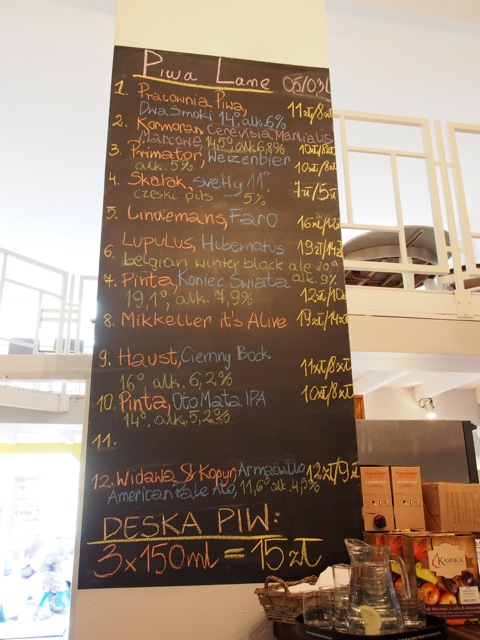 Piwa Lane 05/03
1. Pracownia Piwa, 11zł/8zł
Dwa Smoki 14° alk. 6%
2. Kormoran Cerevisia Martialis
Marcowe 14,5° alk. 6,8% 10zł/8zł
3. Primator, Weizenbier
alk. 5% 10zł/8zł
4. Skalak, svetly 11° 7zł/5zł
czeski pils 5%
5. Lindemans, Faro 16zł/12zł
6. Lupulus, Hibernatus 19zł/14zł
belgian winter black ale 20°
alk. 9%
7. Pinta, Koniec Świata
19,1°, alk. 7,9% 12zł/10zł
8. Mikkeller it's Alive 19zł/14zł
9. Haust, Ciemny Bock 11zł/8zł
16°, alk. 6,2%
10. Pinta, Oto Mata IPA 10zł/8zł
14°, alk. 5,2%
11.
12. Widawa St. Kopyr, Armadillo 12zł/9zł
American Pale Ale, 11,6° alk. 4,5%
DESKA PIW:
3x150ml = 15zł
KASNKA